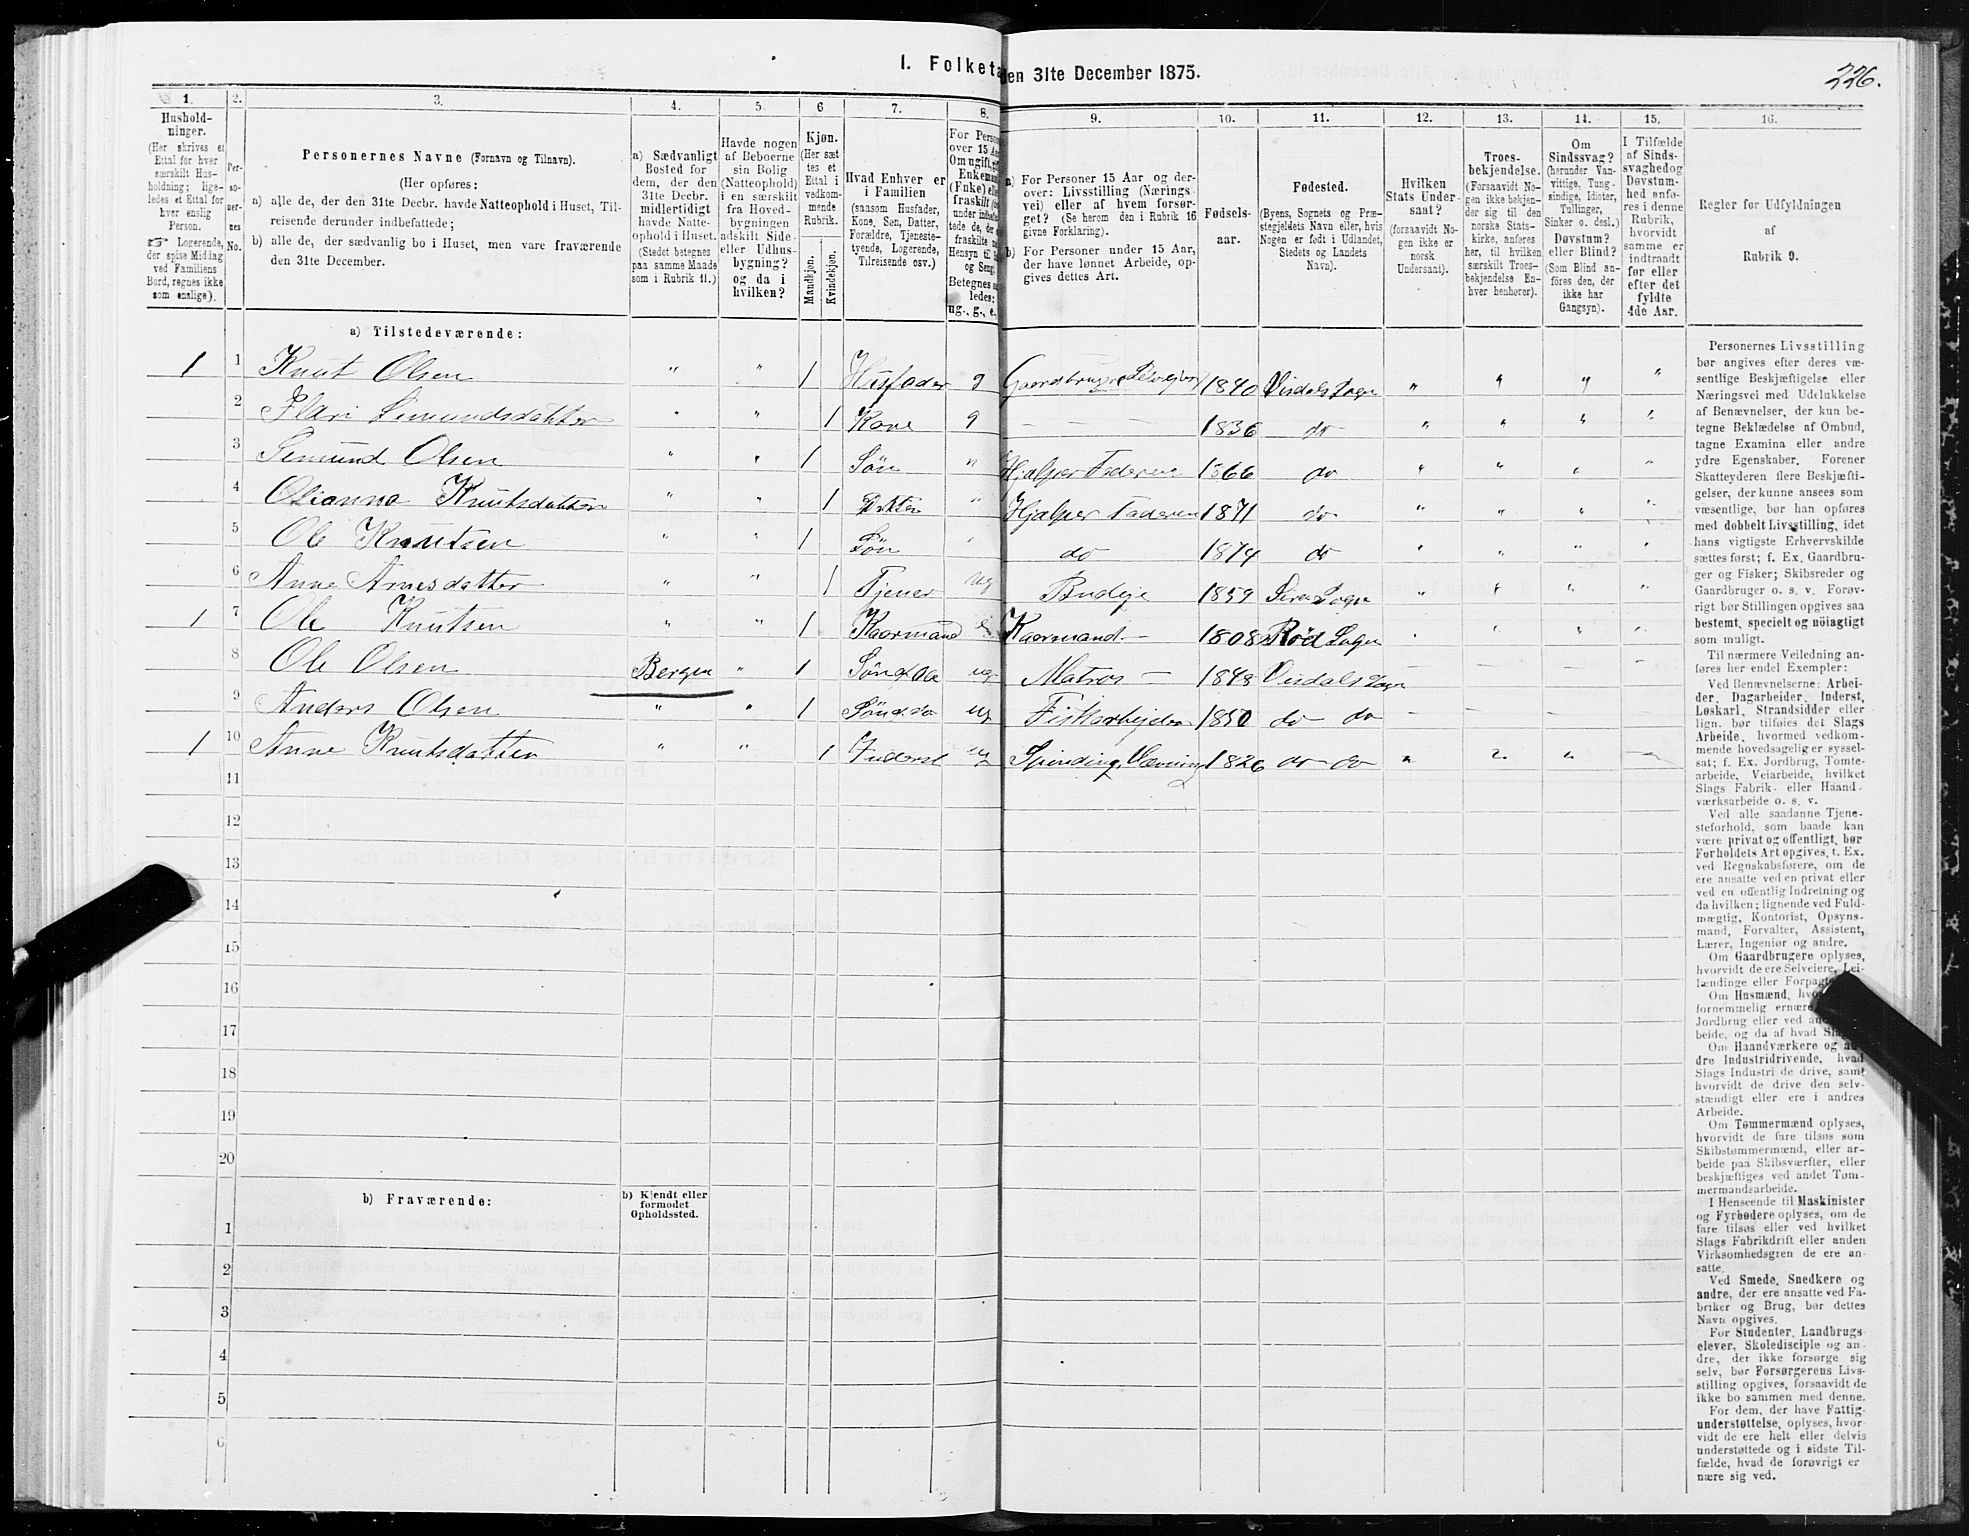 I. Folketa
den 31te December 1875.
226.
1.
Hushold-
ninger.
(Her skrives et
Ettal for hver
særskilt Hus-
holdning; lige-
ledes et Ettal for
hver enslig
Person.
☞ Logerende,
der spise Middag
ved Familiens
Bord, regnes ikke
som enslige).
2.
Per-
so-
ner-
nes
No.
3.
Personernes Navne (Fornavn og Tilnavn).
(Her opføres:
a) alle de, der den 31te Decbr. havde Natteophold i Huset, Til-
reisende derunder indbefattede;
b) alle de, der sædvanlig bo i Huset, men vare fraværende
den 31te December.
4.
a) Sædvanligt
Bosted for
dem, der den
31te Decbr.
midlertidigt
havde Natte-
ophold i Huset.
(Stedet betegnes
paa samme Maade
som i Rubrik 11.)
5.
Havde nogen
af Beboerne
sin Bolig
(Natteophold)
i en særskilt
fra Hoved-
bygningen
adskilt Side-
eller Udhus-
bygning?
og da i
hvilken?
6
Kjøn.
(Her sæt
tes et
Ettal i
vedkom-
mende
Rubrik.
Mandkjøn.
Kvindekjøn.
7.
Hvad Enhver er
i Familien
(saasom Husfader,
Kone, Søn, Datter,
Forældre, Tjeneste-
tyende, Logerende,
Tilreisende osv.)
8.
For Perso
over 15 Aa
Om ugift, gift
Enkema
(Fnke) el
fraskilt (
under indbe
tede de, der
fraskilte
Hensyn til
og Seng
Betegnes
ledes:
ug., g., e.,
9.
a) For Personer 15 Aar og der-
over: Livsstilling (Nærings-
vei) eller af hvem forsør-
get? (Se herom den i Rubrik 16
givne Forklaring).
b) For Personer under 15 Aar,
der have lønnet Arbeide, op-
gives dettes Art.
10.
Fødsels-
aar.
11.
Fødested.
(Byens, Sognets og Præ-
stegjeldets Navn eller, hvis
Nogen er født i Udlandet,
Stedets og Landets
Navn).
12.
Hvilken
Stats Under-
saat?
(forsaavidt No-
gen ikke er
norsk
Undersaat).
13.
Troes-
bekjendelse.
(Forsaavidt No-
gen ikke bekjen-
der sig til den
norske Stats-
kirke, anføres
her, til hvilken
særskilt Troes-
bekjendelse En-
hver henhører).
14.
Om
Sindssvag?
(herunder Van-
vittige, Tung-
sindige, Idioter,
Tullinger,
Sinker o. desl.)
Døvstum?
eller Blind?
(Som Blind an-
føres den, der
ikke har
Gangsyn).
15.
I Tilfælde
af Sinds-
svaghed og
Døvstum-
hed anfø-
res i denne
Rubrik,
hvorvidt
samme er
indtraadt
før eller
efter det
fyldte
4de Aar.
16.
Regler for Udfyldningen
af
Rubrik 9.
a) Tilstedeværende:
1 1 Knut Olsen " " 1 Husfader g Gaardbruger Selveier 1840 Visdals Sogn " " " "
2 Simundsdatter " " 1 Kone g — — — 1836 do " " " "
3 Simund Olsen " " 1 Søn " Hjælper Faderen 1866 do " " " "
4 Olianna Knutsdatter " " 1 Datter " Hjælper Faderen 1871 do " " " "
5 Ole Knutsen " " 1 Søn " do 1874 do " " " "
6 Anne Arnesdatter " " 1 Tjener ug Budeje 1859 Sogn " " " "
1 7 Ole Knutsen " " 1 Kaarmand e Kaarmand — 1808 Rød Sogn " " " "
8 Ole Olsen Bergen " 1 ug Matros — 1848 Visdals Sogn — — — —
9 Anders Olsen " " 1 ug Fiskarbejder 1850 do do — — — —
1 10 Anne Knutsdatter " " 1 Inderst ug Spinding, Vævning 1826 do do " " " —
11
12
13
14
15
16
17
18
19
20
b) Fraværende:
b) Kjendt eller
formodet
Opholdssted.
1
2
3
4
5
6
Personernes Livsstilling
bør angives efter deres væ-
sentlige Beskjæftigelse eller
Næringsvei med Udelukkelse
af Benævnelser, der kun be-
tegne Beklædelse af Ombud,
tagne Examina eller andre
ydre Egenskaber. Forener
Skatteyderen flere Beskjæfti-
gelser, der kunne ansees som
væsentlige, bør han opføres
med dobbelt Livsstilling, idet
hans vigtigste Erhvervskilde
sættes først; f. Ex. Gaardbru-
ger og Fisker; Skibsreder og
Gaardbruger o. s. v. Forøv-
rigt bør Stillingen opgives saa
bestemt, specielt og nøiagtigt
som muligt.
Til nærmere Veiledning an-
føres her endel Exempler:
Ved Benævnelserne: Arbei-
der, Dagarbeider, Inderst,
Løskarl, Strandsidder eller
lign. bør tilføies det Slags
Arbeide, hvormed vedkom-
mende hovedsagelig er syssel-
sat; f. Ex. Jordbrug, Tomte-
arbeide, Veiarbeide, hvilket
Slags Fabrik- eller Haand-
værksarbeide o. s. v.
Ved alle saadanne Tjene-
steforhold, som baade kan
være privat og offentligt, bør
Forholdets Art opgives, t. Ex.
ved Regnskabsførere, om de
ere ansatte ved en privat eller
ved en offentlig Indretning og
da hvilken; lignende ved Fuld-
mægtig, Kontorist, Opsyns-
mand, Forvalter, Assistent,
Lærer, Ingeniør og andre.
Om Gaardbrugere oplyses,
hvorvidt de ere Selveiere, Lei-
lændinge eller Forpagt
Om Husmænd, hvo
fornemmelig ernære
Jordbrug eller ved an
beide, og da af hvad Slag
Om Haandværkere og an-
dre Industridrivende, hvad
Slags Industri de drive, samt
hvorvidt de drive den selv-
stændigt eller ere i andres
Arbeide.
Om Tømmermænd oplyses,
hvorvidt de fare tilsøs som
Skibstømmermænd, eller ar-
beide paa Skibsværfter, eller
beskjæftiges ved andet Tøm-
mermandsarbeide.
I Henseende til Maskinister
og Fyrbødere oplyses, om de
fare tilsøs eller ved hvilket
Slags Fabrikdrift eller anden
Virksomhedsgren de ere an-
satte.
Ved Smede, Snedkere og
andre, der ere ansatte ved Fa-
briker og Brug, bør dettes
Navn opgives.
For Studenter, Landbrugs-
elever, Skoledisciple og an-
dre, der ikke forsørge sig
selv, bør Forsørgerens Livs-
stilling opgives, forsaavidt de
ikke bo sammen med denne.
For dem, der have Fattig-
understøttelse, oplyses, hvor-
vidt de ere helt eller delvis
understøttede og i sidste Til-
fælde, hvad de forøvrigt er
nære sig ved.